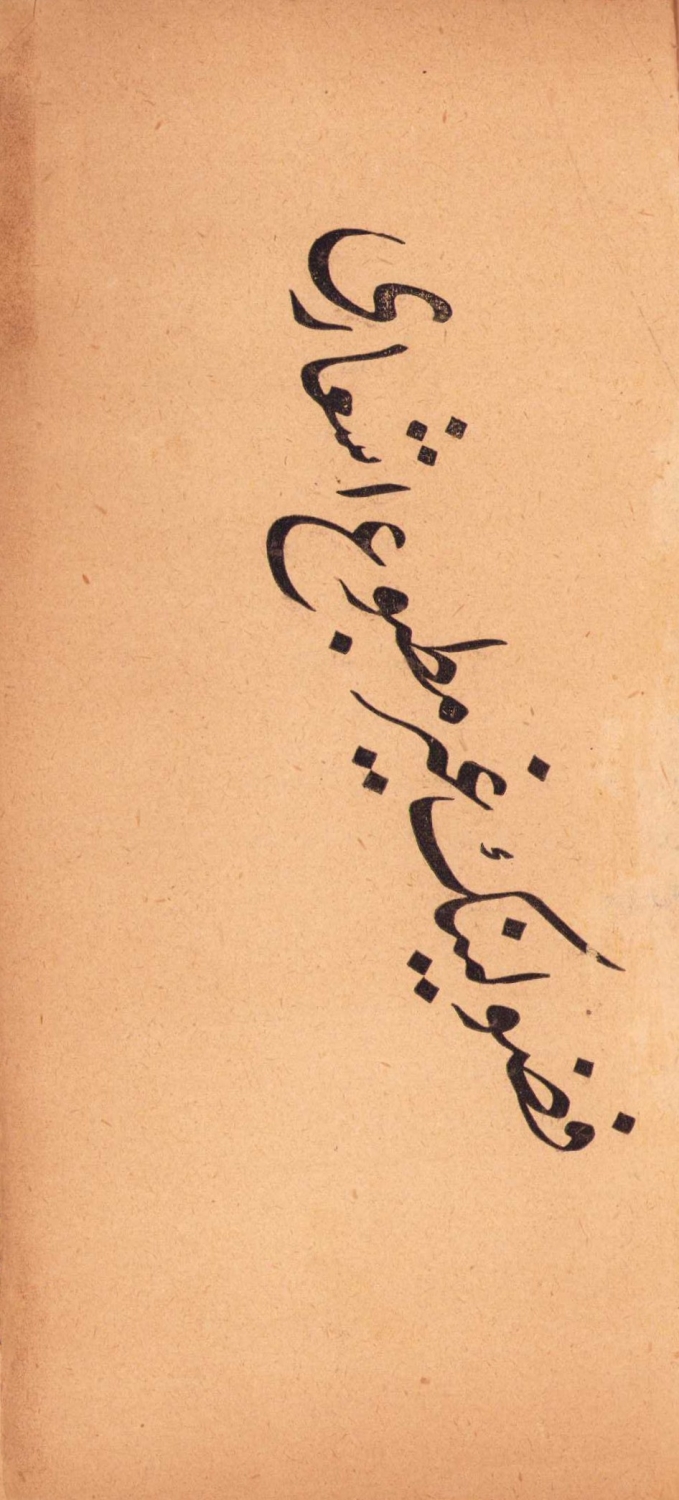 فضولینڭ غیر مطبوع اشعاری